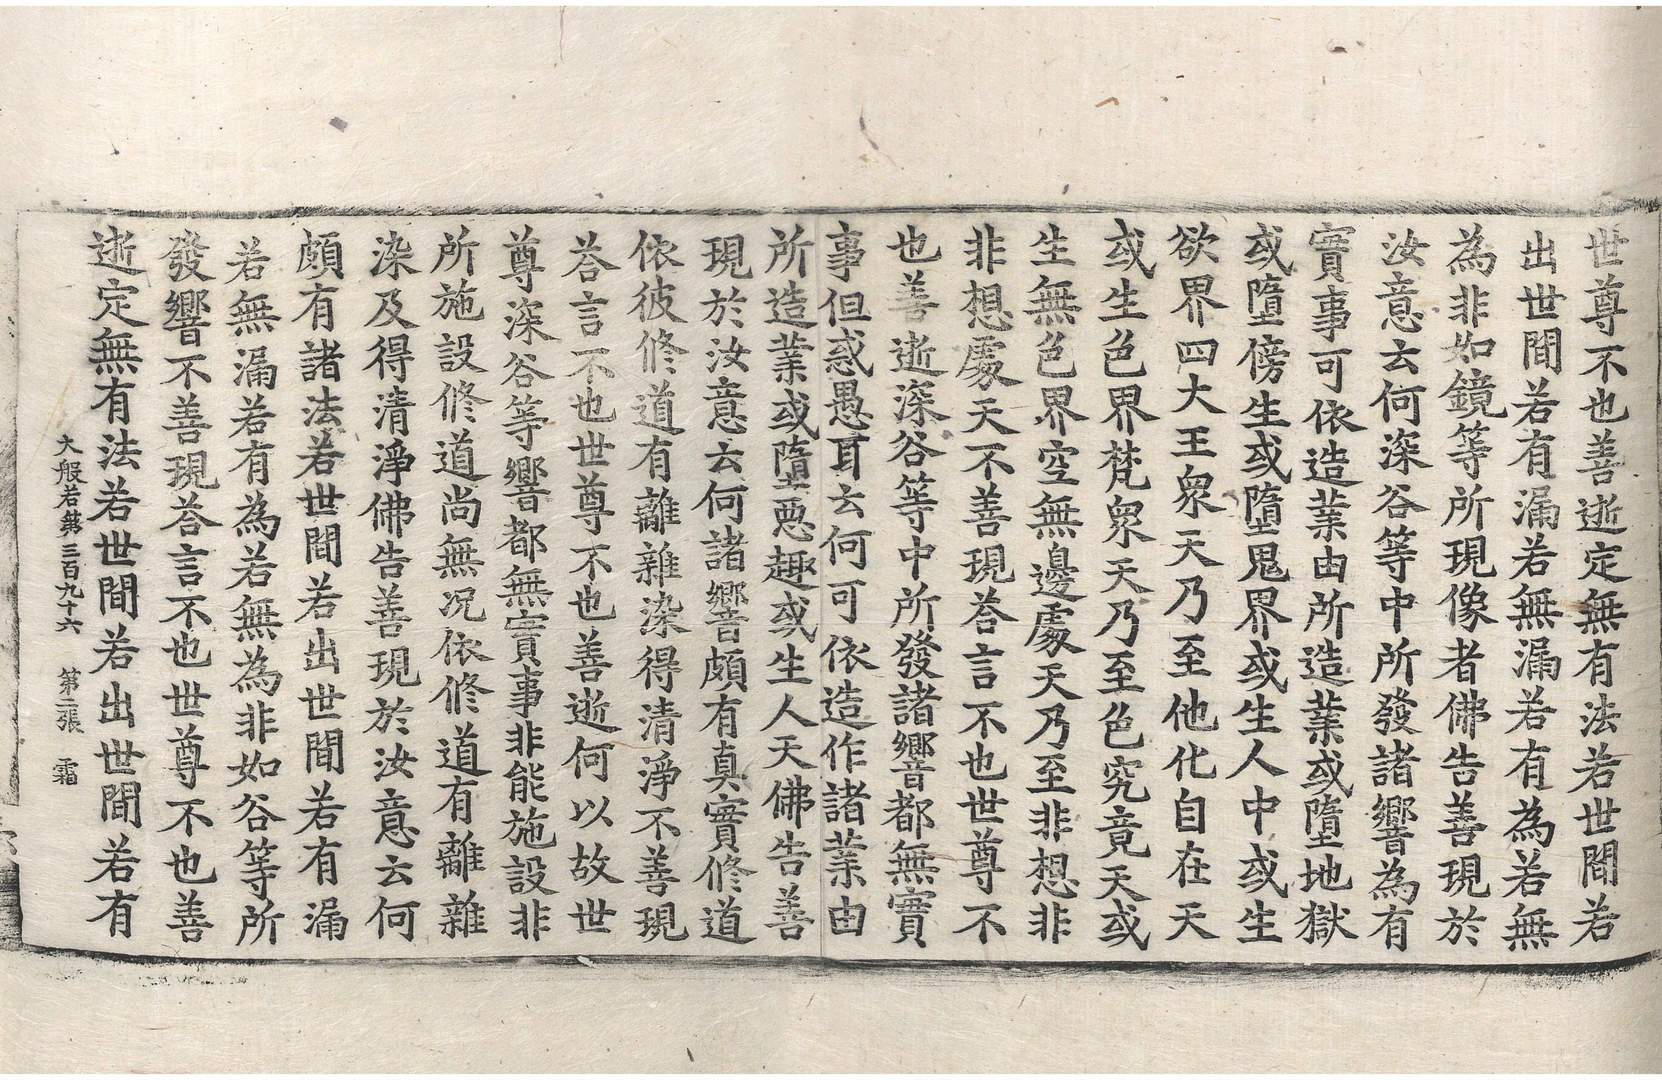 世尊不也善逝定無有法若世間若
出世間若有漏若無漏若有為若無
為非如鏡等所現像者佛告善現於
汝意云何深谷等中所發諸響為有
實事可依造業由所造業或墮地獄
或墮傍生或墮鬼界或生人中或生
欲界四大王衆天乃至他化自在天
或生色界梵衆天乃至色究竟天或
生無色界空無邊處天乃至非想非
非想處天不善現荅言不也世尊不
也善逝深谷等中所發諸響都無實
事但惑愚耳云何可依造作諸業由
所造業或墮惡趣或生人天佛告善
現於汝意云何諸響頗有真實修道
依彼修道有離雜染得清淨不善現
荅言不也世尊不也善逝何以故世
尊深谷等響都無實事非能施設非
所施設修道尚無况依修道有離雜
染及得清淨佛告善現於汝意云何
頗有諸法若世間若出世間若有漏
若無漏若有為若無為非如谷等所
發響不善現荅言不也世尊不也善
逝定無有法若世間若出世間若有
大般若第三百九十六 第二張 霜